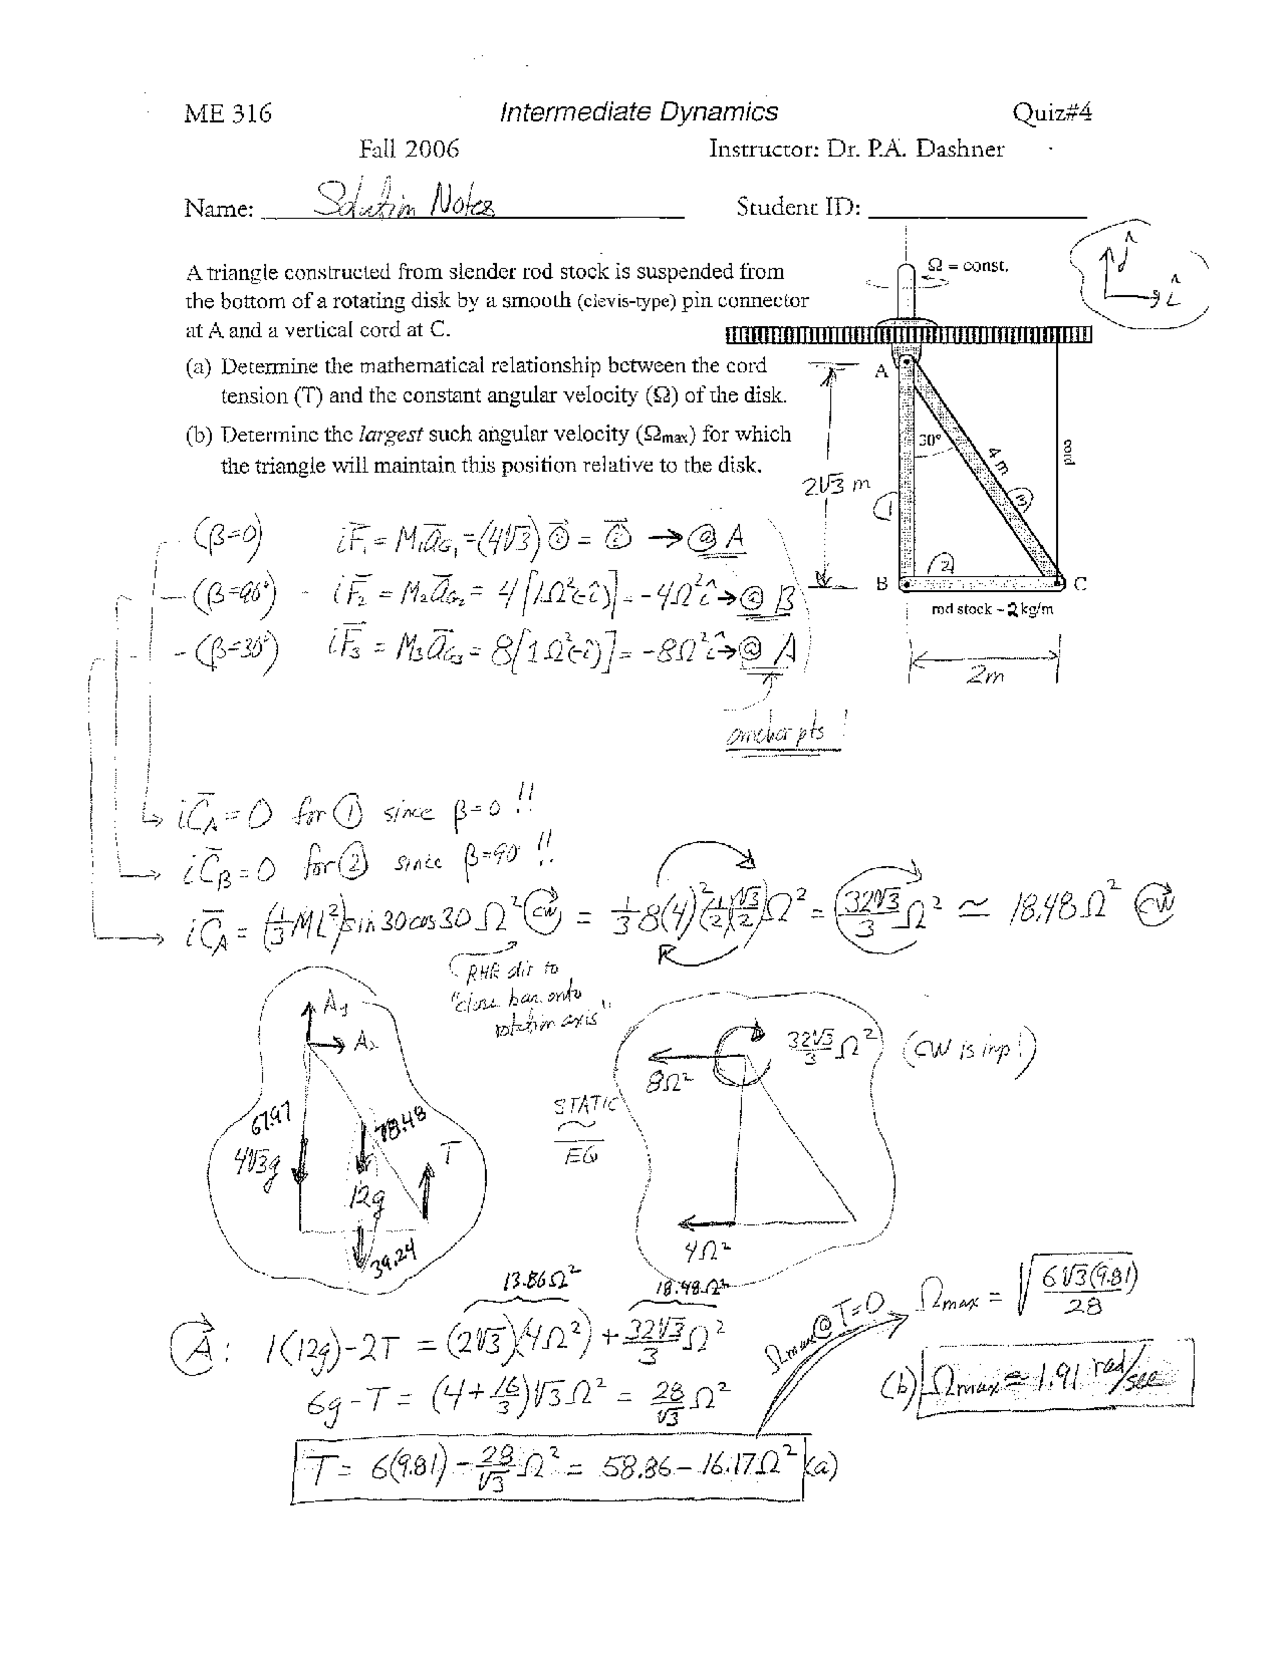 ME 316 Intermediate Dynamics Quiz#4
Fall 2006 Instructor: Dr. P.A. Dashner
Name: Solution Notes Student ID:
A triangle constructed from slender rod stock is suspended from
the bottom of a rotating disk by a smooth (clevis-type) pin connector
at A and a vertical cord at C.
(a) Determine the mathematical relationship between the cord
tension (T) and the constant angular velocity (Ω) of the disk.
(b) Determine the largest such angular velocity (Ωmax) for which
the triangle will maintain this position relative to the disk.
Ω = const.
ĵ
î
A
30°
4 m
cord
2√3 m
1
3
2
B
C
rod stock ~ 2 kg/m
2m
(β=0) iF̄₁ = M₁āG₁ = (4√3) 0̄ = 0̄ → @ A
(β=90°) iF̄₂ = M₂āG₂ = 4[1Ω²(-î)] = -4Ω²î → @ B
(β=30°) iF̄₃ = M₃āG₃ = 8[1Ω²(-î)] = -8Ω²î → @ A
anchor pts!
iC̄A = 0 for ① since β=0 !!
iC̄B = 0 for ② since β=90° !!
iC̄A = (1/3 ML²) sin30cos30 Ω² CW = 1/3 8(4)²(1/2)(√3/2)Ω² = 32√3/3 Ω² ≃ 18.48Ω² CW
RHR dir to
"close bar onto
rotation axis"
Ay
Ax
67.97
4√3g
78.48
T
12g
39.24
STATIC
EQ
32√3/3 Ω² (CW is inp!)
8Ω²
4Ω²
13.86Ω² 18.48Ω²
A: 1(12g)-2T = (2√3)(4Ω²) + 32√3/3 Ω²
6g-T = (4+16/3)√3Ω² = 28/√3 Ω²
T = 6(9.81) - 28/√3 Ω² = 58.86 - 16.17Ω² (a)
Ωmax @ T=0
Ωmax = √(6√3(9.81)/28)
(b) Ωmax ≃ 1.91 rad/sec